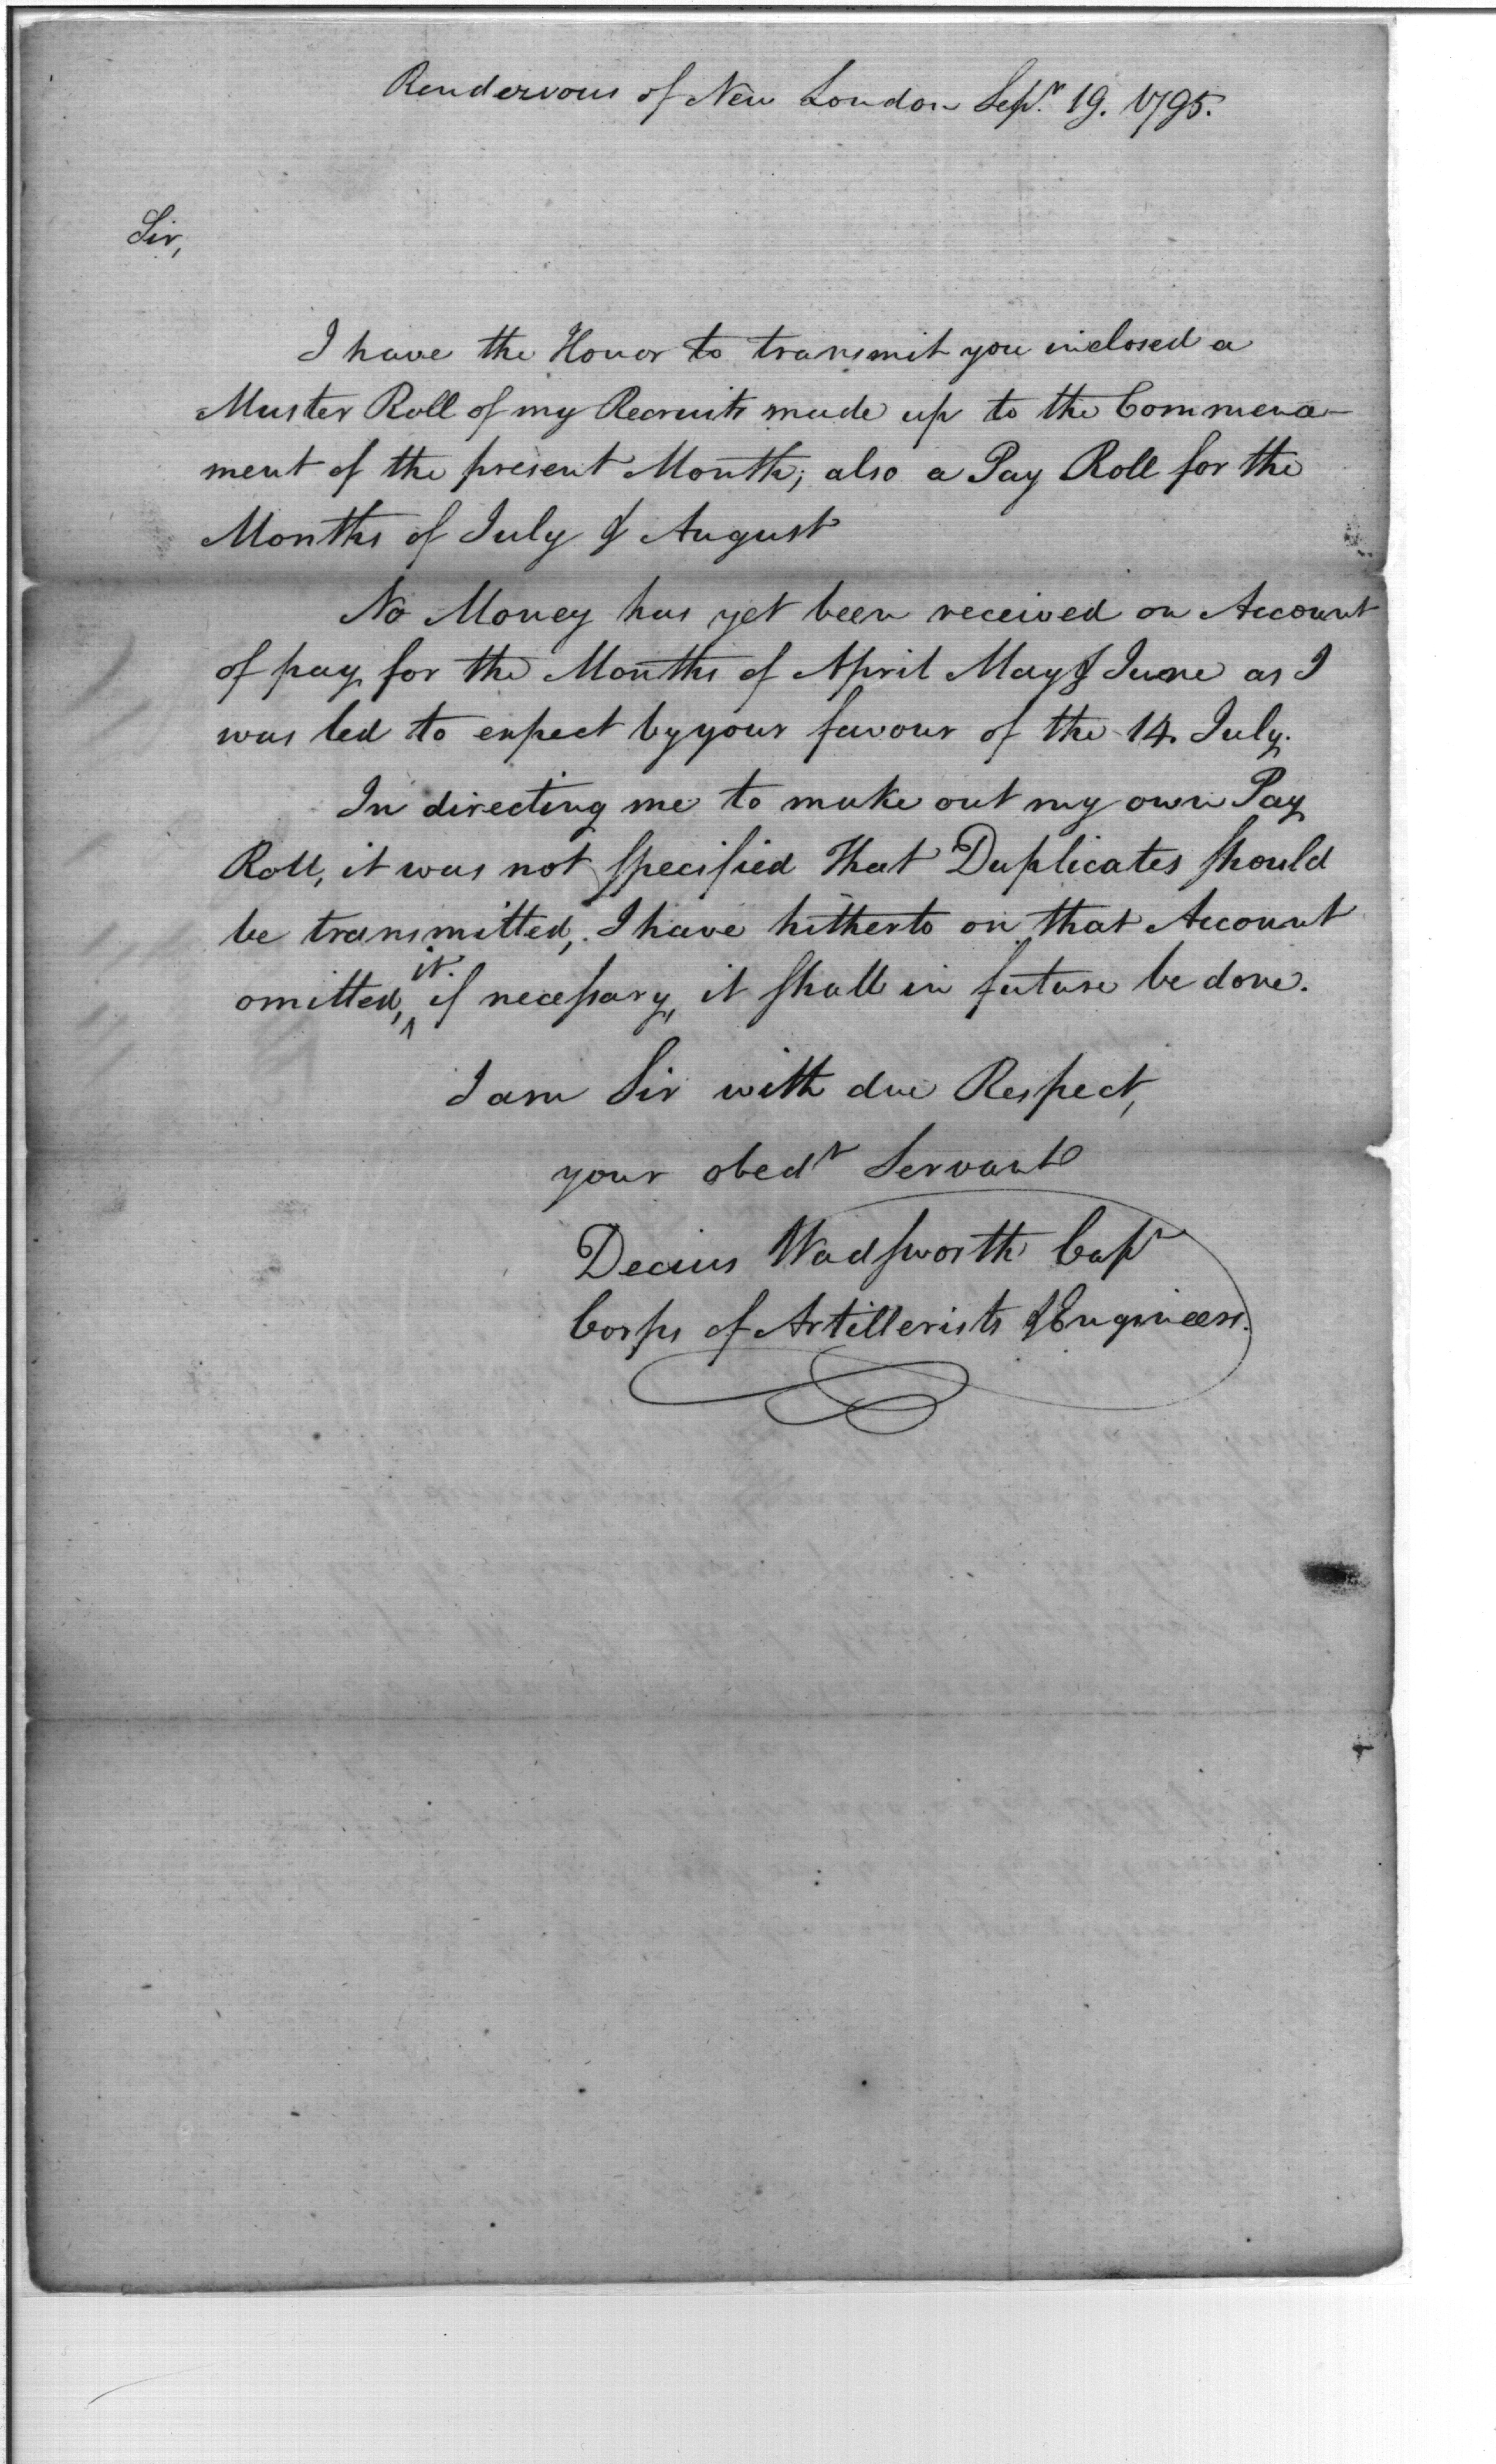 Rendezvous of New London Sepr. 19. 1795.
Sir,
I have the Honor to transmit you inclosed a
Muster Roll of my Recruits made up to the Commence-
ment of the present Month; also a Pay Roll for the
Months of July & August
No Money has yet been received on Account
of pay for the Months of April May & June as I
was led to expect by your favour of the 14. July.
In directing me to make out my own Pay
Roll, it was not specified that Duplicates should
be transmitted, I have hitherto on that Account
omitted, it. if necessary, it shall in future be done.
I am Sir with due Respect,
your obedt Servant
Decius Wadsworth Capt
Corps of Artillerists & Engineers.